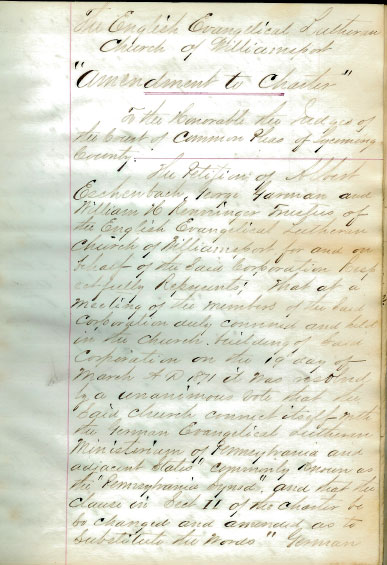 The English Evangelical Lutheran
Church of Williamsport
"Amendment to Charter"
To the Honorable the Judges of
the Court of Common Pleas of Lycoming
County.
The Petition of Albert
Eschenbach, George Garman and
William H Trustees of
the English Evangelical Lutheran
Church of Williamsport for and on
behalf of the said Corporation Resp
ectfully Represents, That at a
Meeting of the members of the said
Corporation duly convened and held
in the Church building of said
Corporation on the day of
March A D 1871 it was resolved
by a unanimous vote that the
said church connect itself with
the German Evangelical Lutheran
Ministerium of Pennsylvania and
adjacent states" commonly known as
the "Pennsylvania Synod", and that the
clause in Sect II of the charter be
be changed and amended as to
substitute the words "German